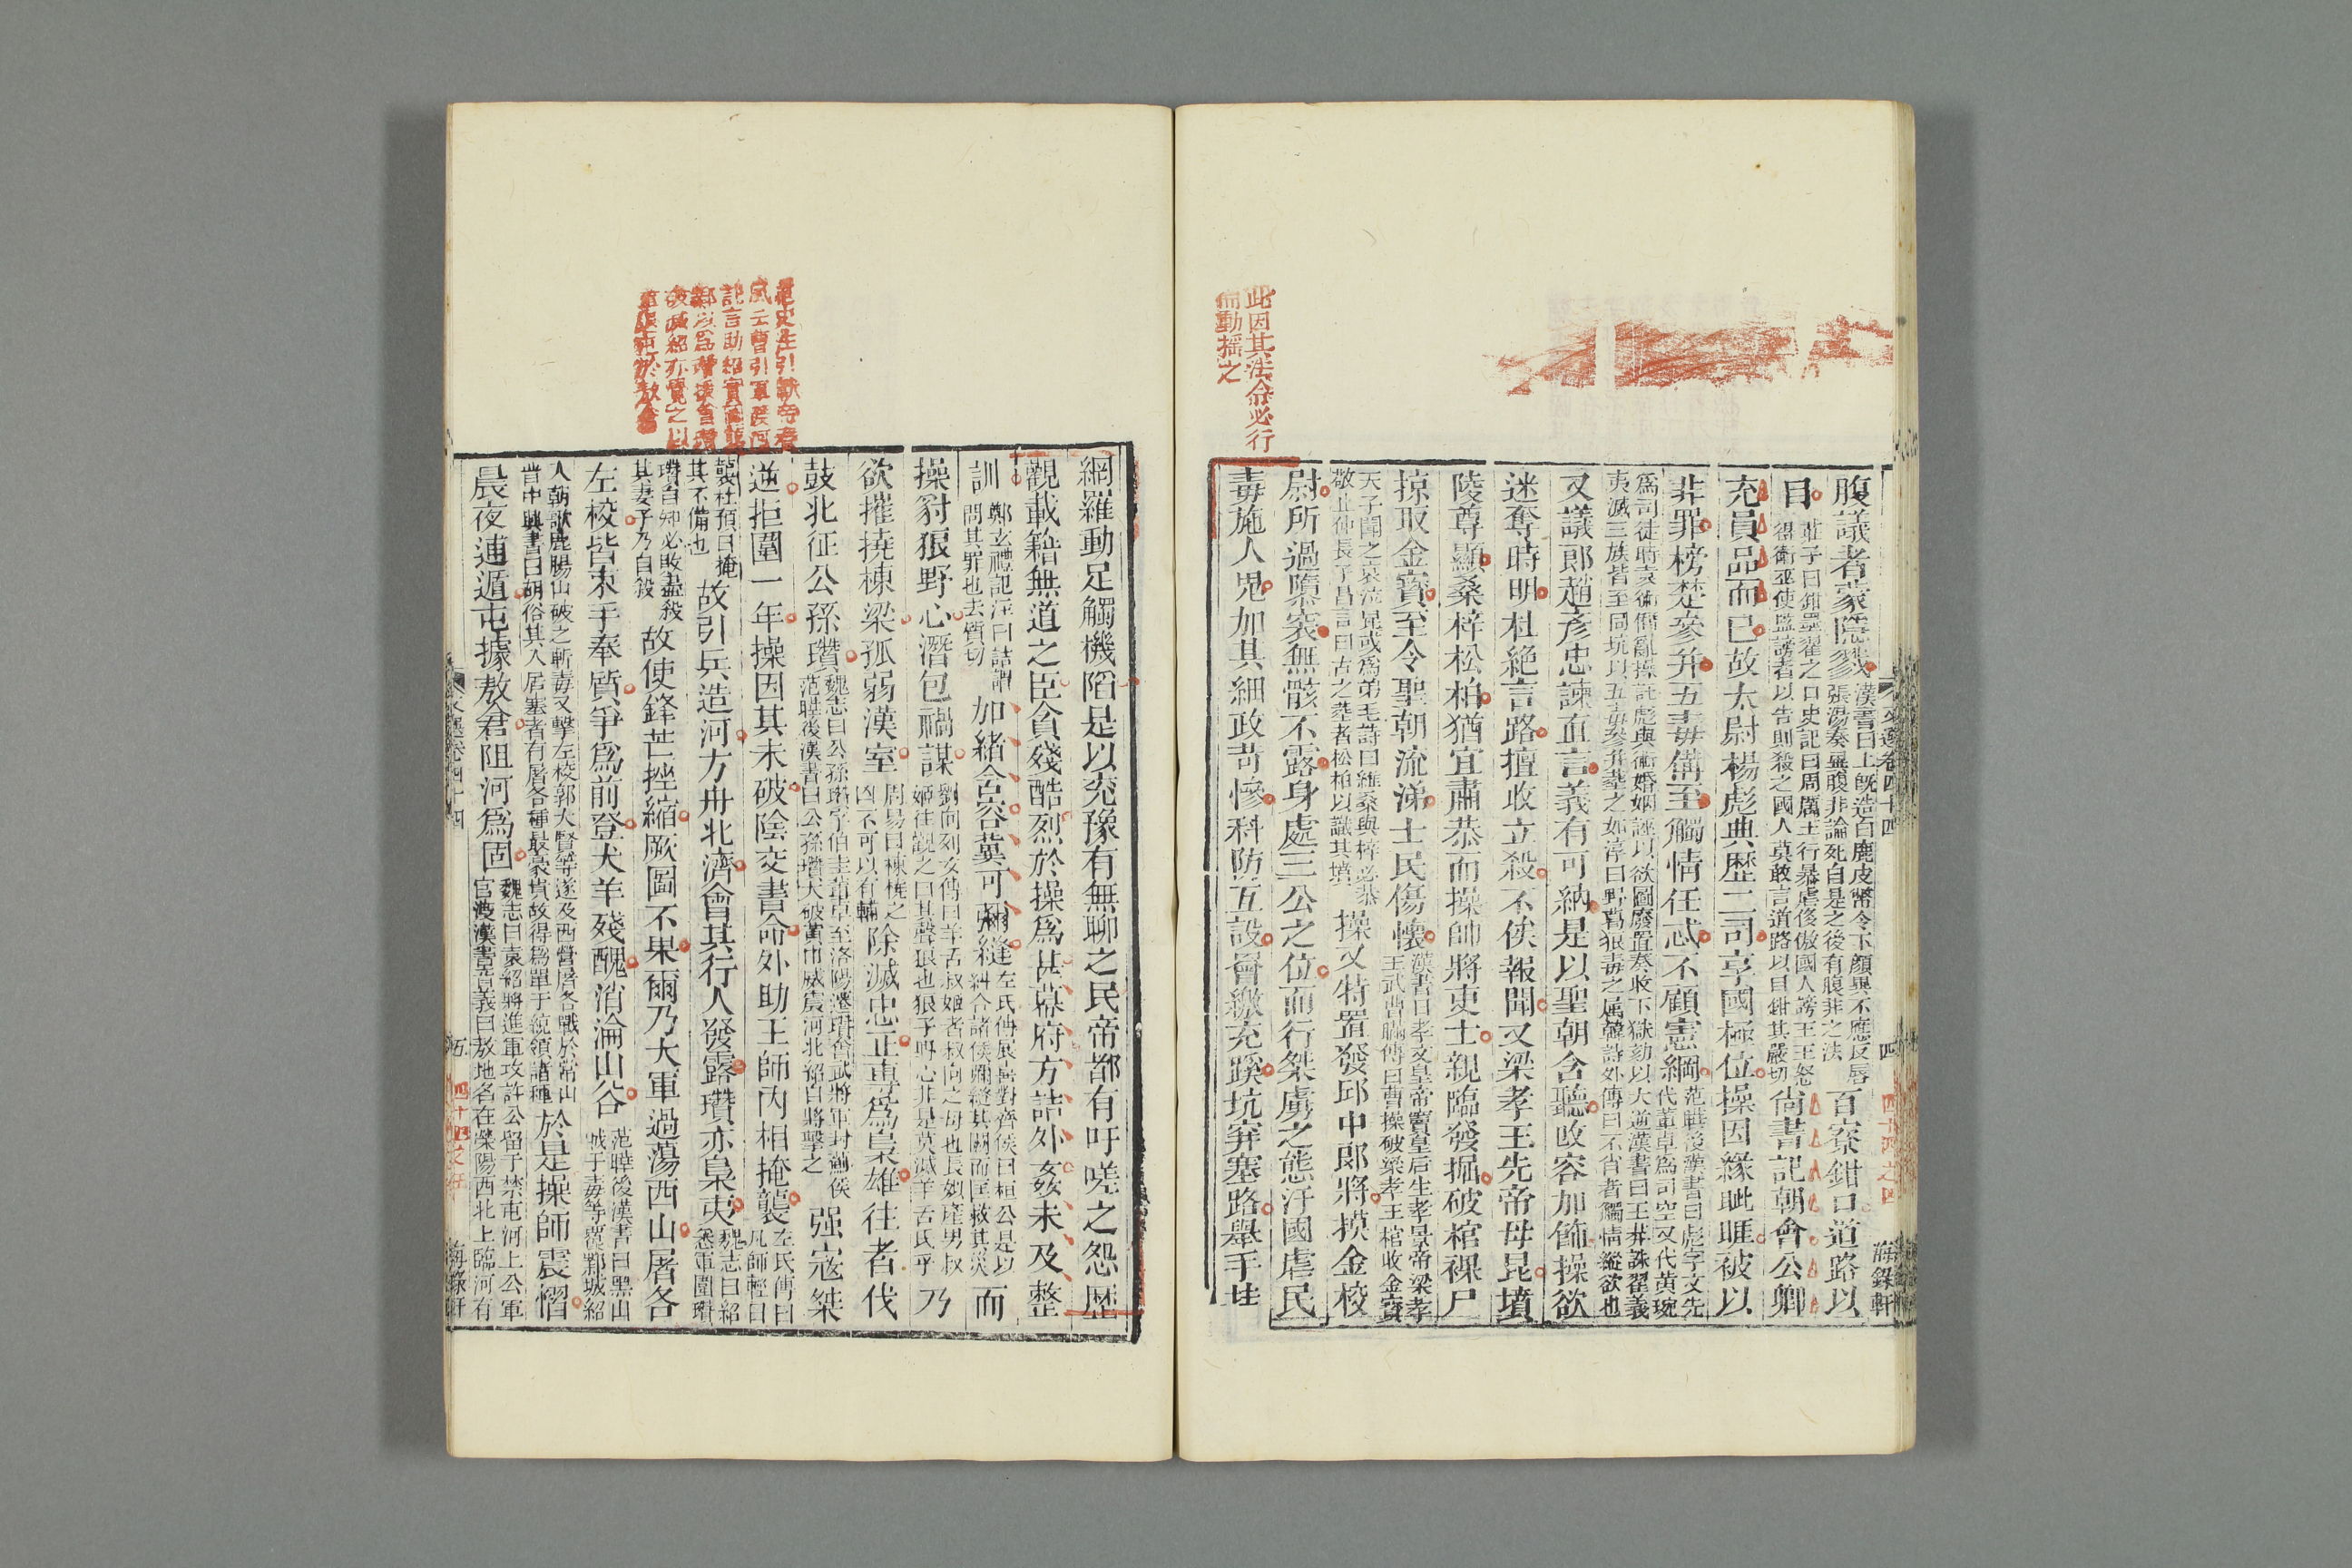 文選卷四十四 四 四十四之四 海錄軒
腹議者蒙隱戮
漢書曰上既造白鹿皮幣令下顏異不應反唇
張湯奏異腹非論死自是之後有腹非之法
百寮鉗口道路以
目
莊子曰鉗墨翟之口史記曰周厲王行暴虐侈傲國人謗王王怒
得衛巫使監謗者以告則殺之國人莫敢言道路以目鉗其嚴切
尚書記朝會公卿
充員品而已故太尉楊彪典歷二司享國極位操因緣眦睚被以
非罪榜楚參并五毒備至觸情任忒不顧憲綱
范曄後漢書曰彪字文先
代董卓為司空又代黃琬
為司徒時袁術僭亂操託彪與術婚姻誣以欲圖廢置奏收下獄劾以大逆漢書曰王莽誅翟義
夷滅三族皆至同坑以五毒參并葬之如淳曰野葛狼毒之属韓詩外傳曰不肖者觸情縱欲也
又議郎趙彥忠諫直言義有可納是以聖朝含聽改容加飾操欲
迷奪時明杜絕言路擅收立殺不俟報聞又梁孝王先帝母昆墳
陵尊顯桑梓松柏猶宜肅恭而操帥將吏士親臨發掘破棺裸尸
掠取金寶至令聖朝流涕士民傷懷
漢書曰孝文皇帝竇皇后生孝景帝梁孝
王武曹瞞傳曰曹操破梁孝王棺收金寶
天子聞之哀泣昆或為弟毛詩曰維桑與梓必恭
敬止仲長子昌言曰古之葬者松柏以識其墳
操又特置發邱中郎將摸金校
尉所過隳突無骸不露身處三公之位而行桀虜之態汙國虐民
此因其法令必行
而動搖之
毒施人鬼加其細政苛慘科防互設罾繳充蹊坑穽塞路舉手挂
網羅動足觸機陷是以兗豫有無聊之民帝都有吁嗟之怨歷
觀載籍無道之臣貪殘酷烈於操為甚幕府方詰外姦未及整
訓
鄭玄禮記注曰詰謂
問其罪也去質切
加緒含容冀可彌縫
左氏傳展喜對齊侯曰桓公是以
糾合諸侯彌縫其闕而匡救其災
而
操豺狼野心潛包禍謀
劉向列女傳曰羊舌叔姬者叔向之母也長姒產男叔
姬往觀之曰其聲狼也狼子野心非是莫滅羊舌氏乎
乃
欲摧撓棟梁孤弱漢室
周易曰棟橈之
凶不可以有輔
除滅忠正專為梟雄往者伐
鼓北征公孫瓚
魏志曰公孫瓚字伯圭董卓至洛陽遷瓚奮武將軍封薊侯
范曄後漢書曰公孫瓚大破黃巾威震河北紹自將擊之
强寇桀
逆拒圍一年操因其未破陰交書命外助王師内相掩襲
左氏傳曰
凡師輕曰
襲杜預曰掩
其不備也
故引兵造河方舟北濟會其行人發露瓚亦梟夷
魏志曰紹
悉軍圍瓚
瓚自知必敗盡殺
其妻子乃自殺
故使鋒芒挫縮厥圖不果爾乃大軍過蕩西山屠各
左校皆束手奉質爭為前登犬羊殘醜消淪山谷
范曄後漢書曰黑山
賊于毒等覆鄴城紹
入朝歌鹿腸山破之斬毒又擊左校郭大賢等遂及西營屠各戰於常山
晉中興書曰胡俗其入居塞者有屠各種最豪貴故得為單于統領諸種
於是操師震慴
晨夜逋遁屯據敖倉阻河為固
魏志曰袁紹將進軍攻許公留于禁屯河上公軍
官渡漢書音義曰敖地名在滎陽西北上臨河有
文選卷四十四 五 四十四之五 海錄軒